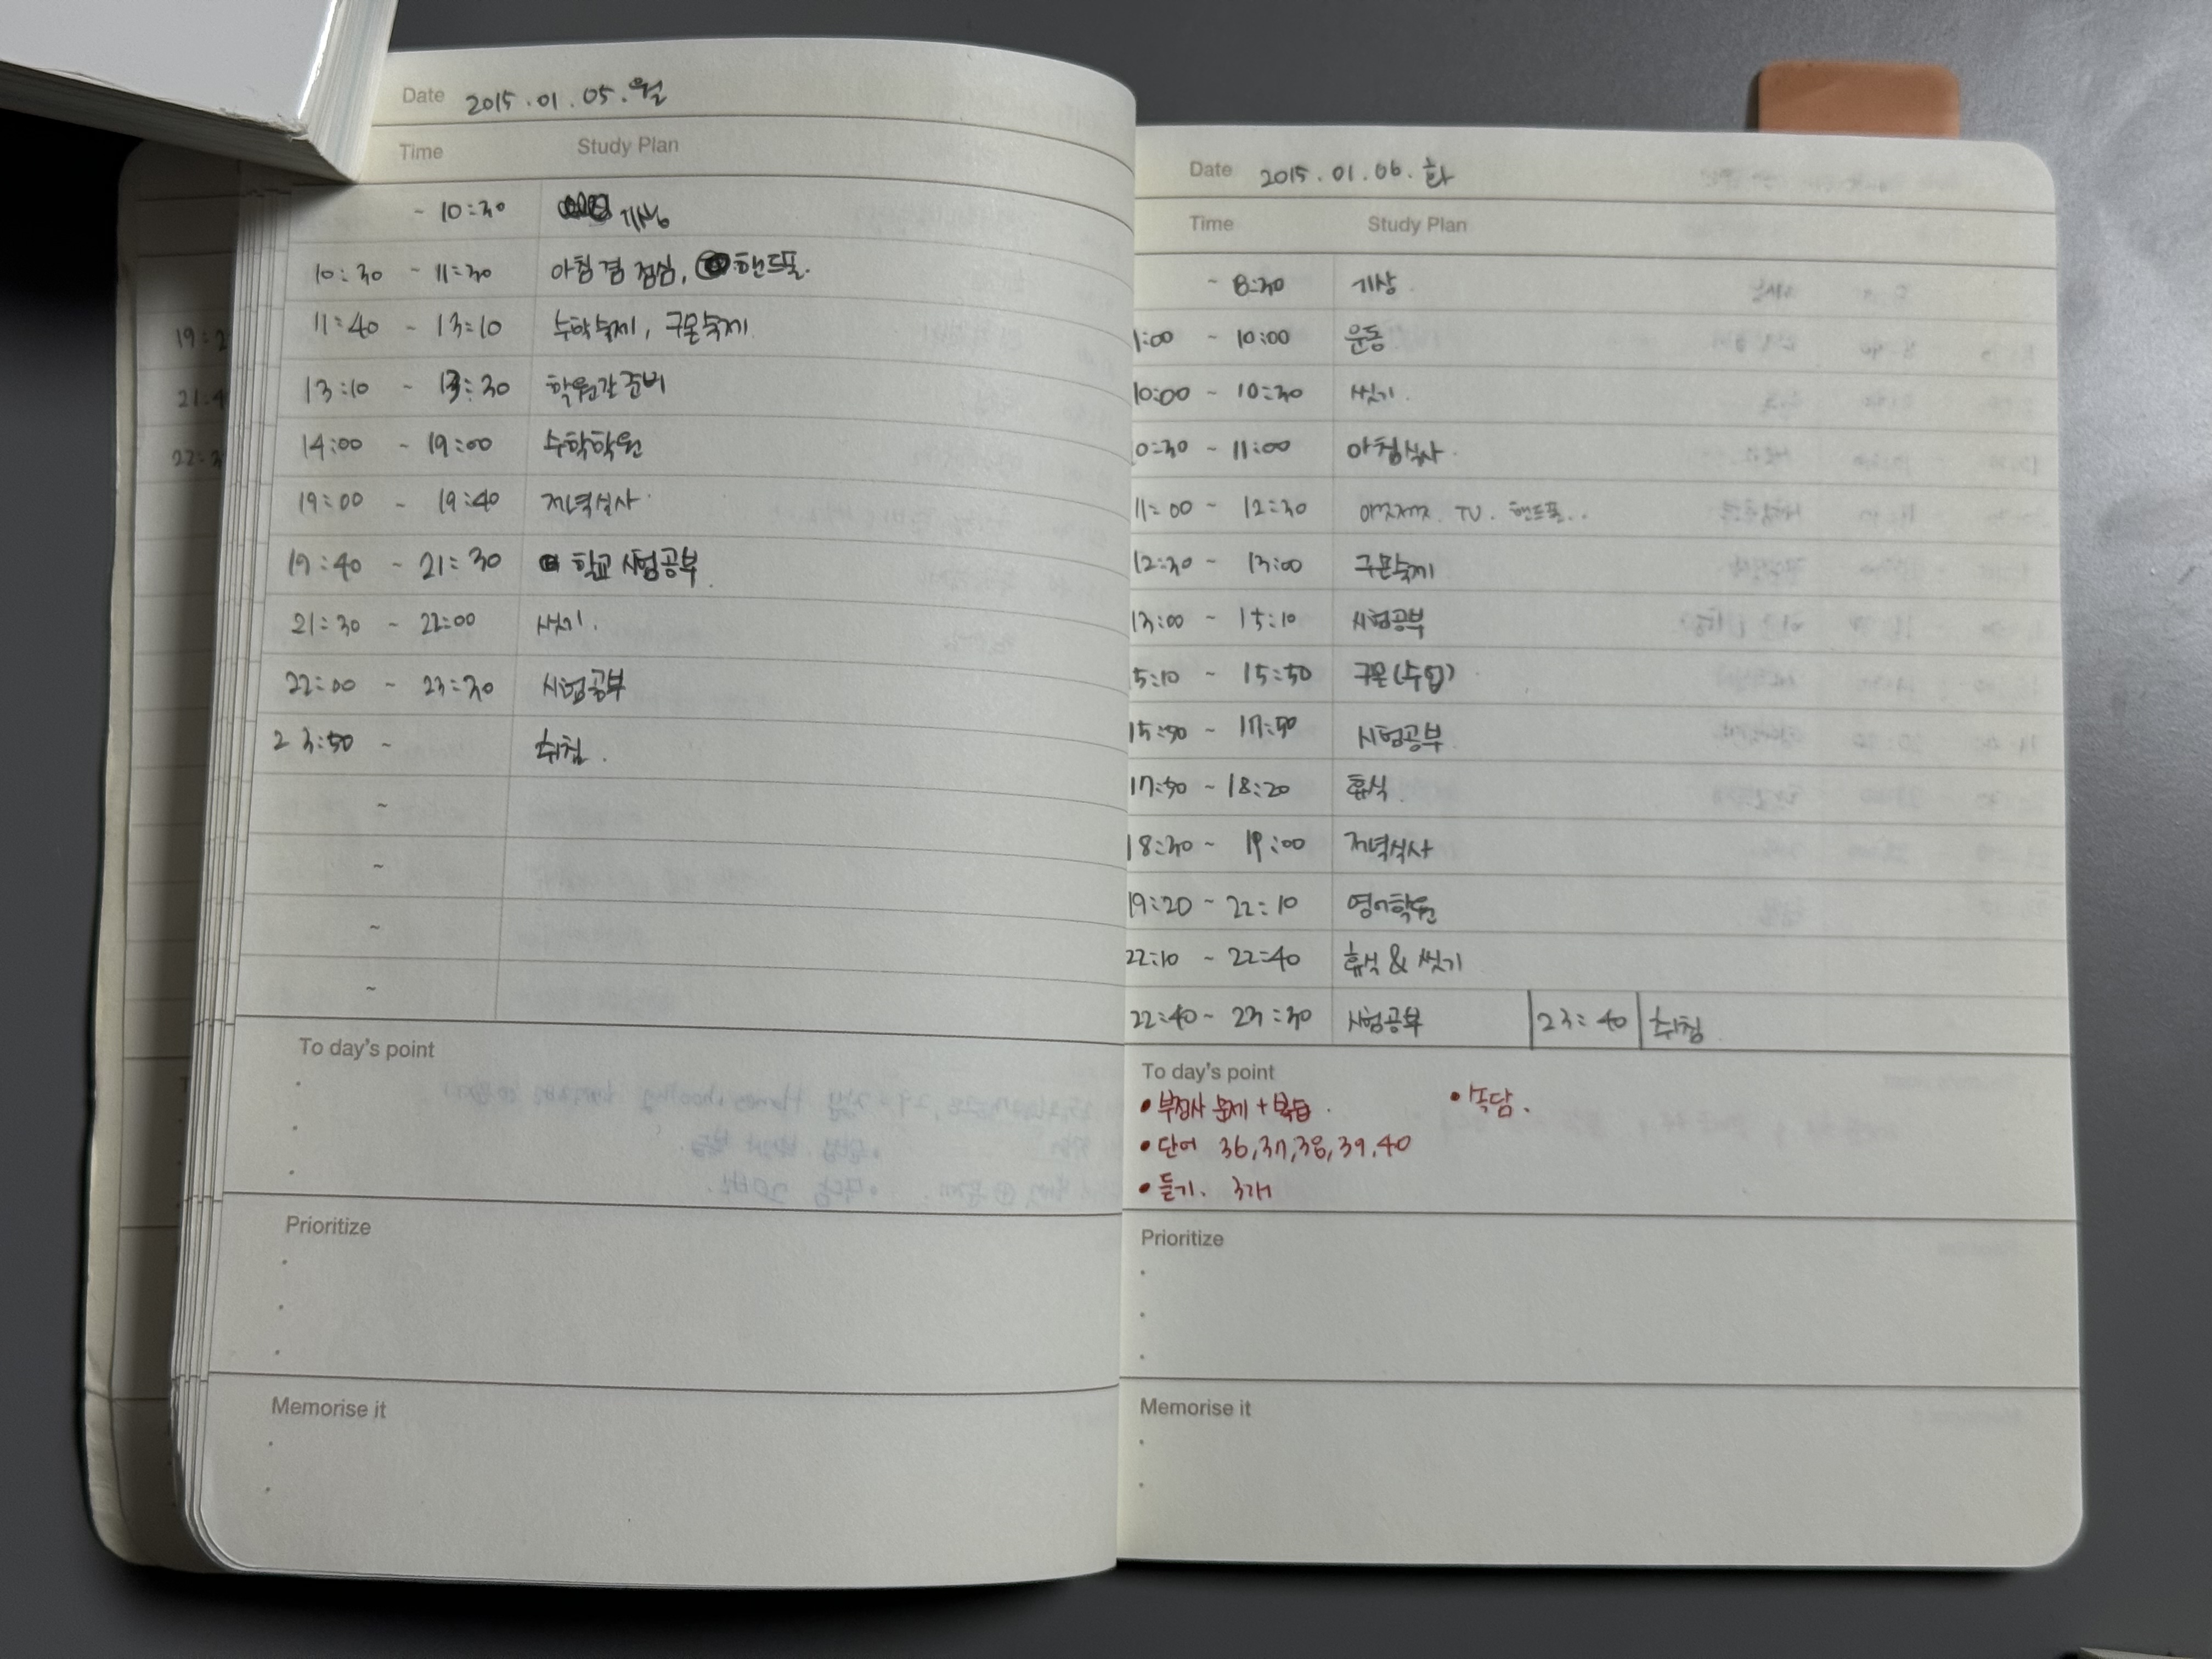 Date 2015.01.05.월
Time Study Plan
~ 10:30 기상
10:30 ~ 11:30 아침 겸 점심, 핸드폰.
11:40 ~ 13:10 수학숙제, 구몬숙제
13:10 ~ 13:30 학원갈 준비
14:00 ~ 19:00 수학학원
19:00 ~ 19:40 저녁식사
19:40 ~ 21:30 학교 시험공부
21:30 ~ 22:00 씻기.
22:00 ~ 23:30 시험공부
23:50 ~ 취침.
~
~
~
~
To day's point
Prioritize
Memorise it
19:2
21:4
22:3
Date 2015.01.06.화
Time Study Plan
~ 8:30 기상
1:00 ~ 10:00 운동
10:00 ~ 10:30 씻기.
0:30 ~ 11:00 아침식사
11:00 ~ 12:30 TV. 핸드폰..
12:30 ~ 13:00 구몬숙제
13:00 ~ 15:10 시험공부
5:10 ~ 15:50 구몬(수업)
15:50 ~ 17:50 시험공부
17:50 ~ 18:20 휴식
18:30 ~ 19:00 저녁식사
19:20 ~ 22:10 영어학원
22:10 ~ 22:40 휴식 & 씻기
22:40 ~ 23:30 시험공부 23:40 취침
To day's point
• 부정사 문제 + 복습. • 속담.
• 단어 36,37,38,39,40
• 듣기. 3개
Prioritize
Memorise it